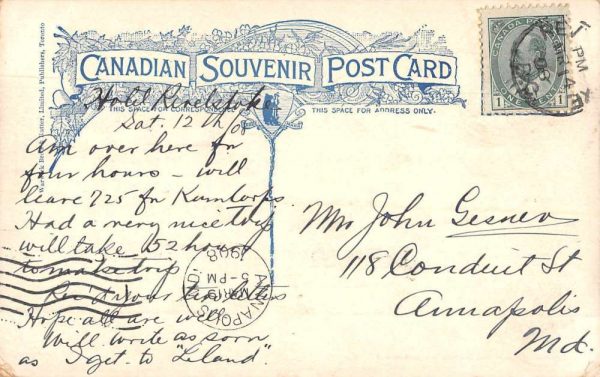 CANADIAN SOUVENIR POST CARD
THIS SPACE FOR CORRESPONDENCE
THIS SPACE FOR ADDRESS ONLY.
Limited, Publishers, Toronto
CANADA POSTAGE
1 1
PM
Hotel Revelstoke
Sat. 12th/08
Am over here for
four hours - will
leave 725 for
Had a very nice trip
will take 152 hours
to make trip
Rec'd your two letters
Hope all are well
Will write as soon
as I get to "Leland".
ANNAPOLIS
MAR 19
5-PM
1908
Mr John Gesner
118 Conduit St
Annapolis
Md.